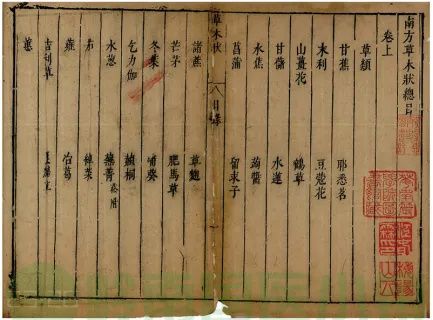 南方草木狀總目
卷上
草類
甘蕉 耶悉茗
末利 豆蔻花
山薑花 鶴草
甘藷 水蓮
水蕉 蒟醬
菖蒲 留求子
草木狀 八 目錄
諸蔗 草麴
芒茅 肥馬草
冬葉 蒲葵
乞力伽 赬桐
水葱 蕪菁
茄 綽菜
蕹 冶葛
吉利草
蕙